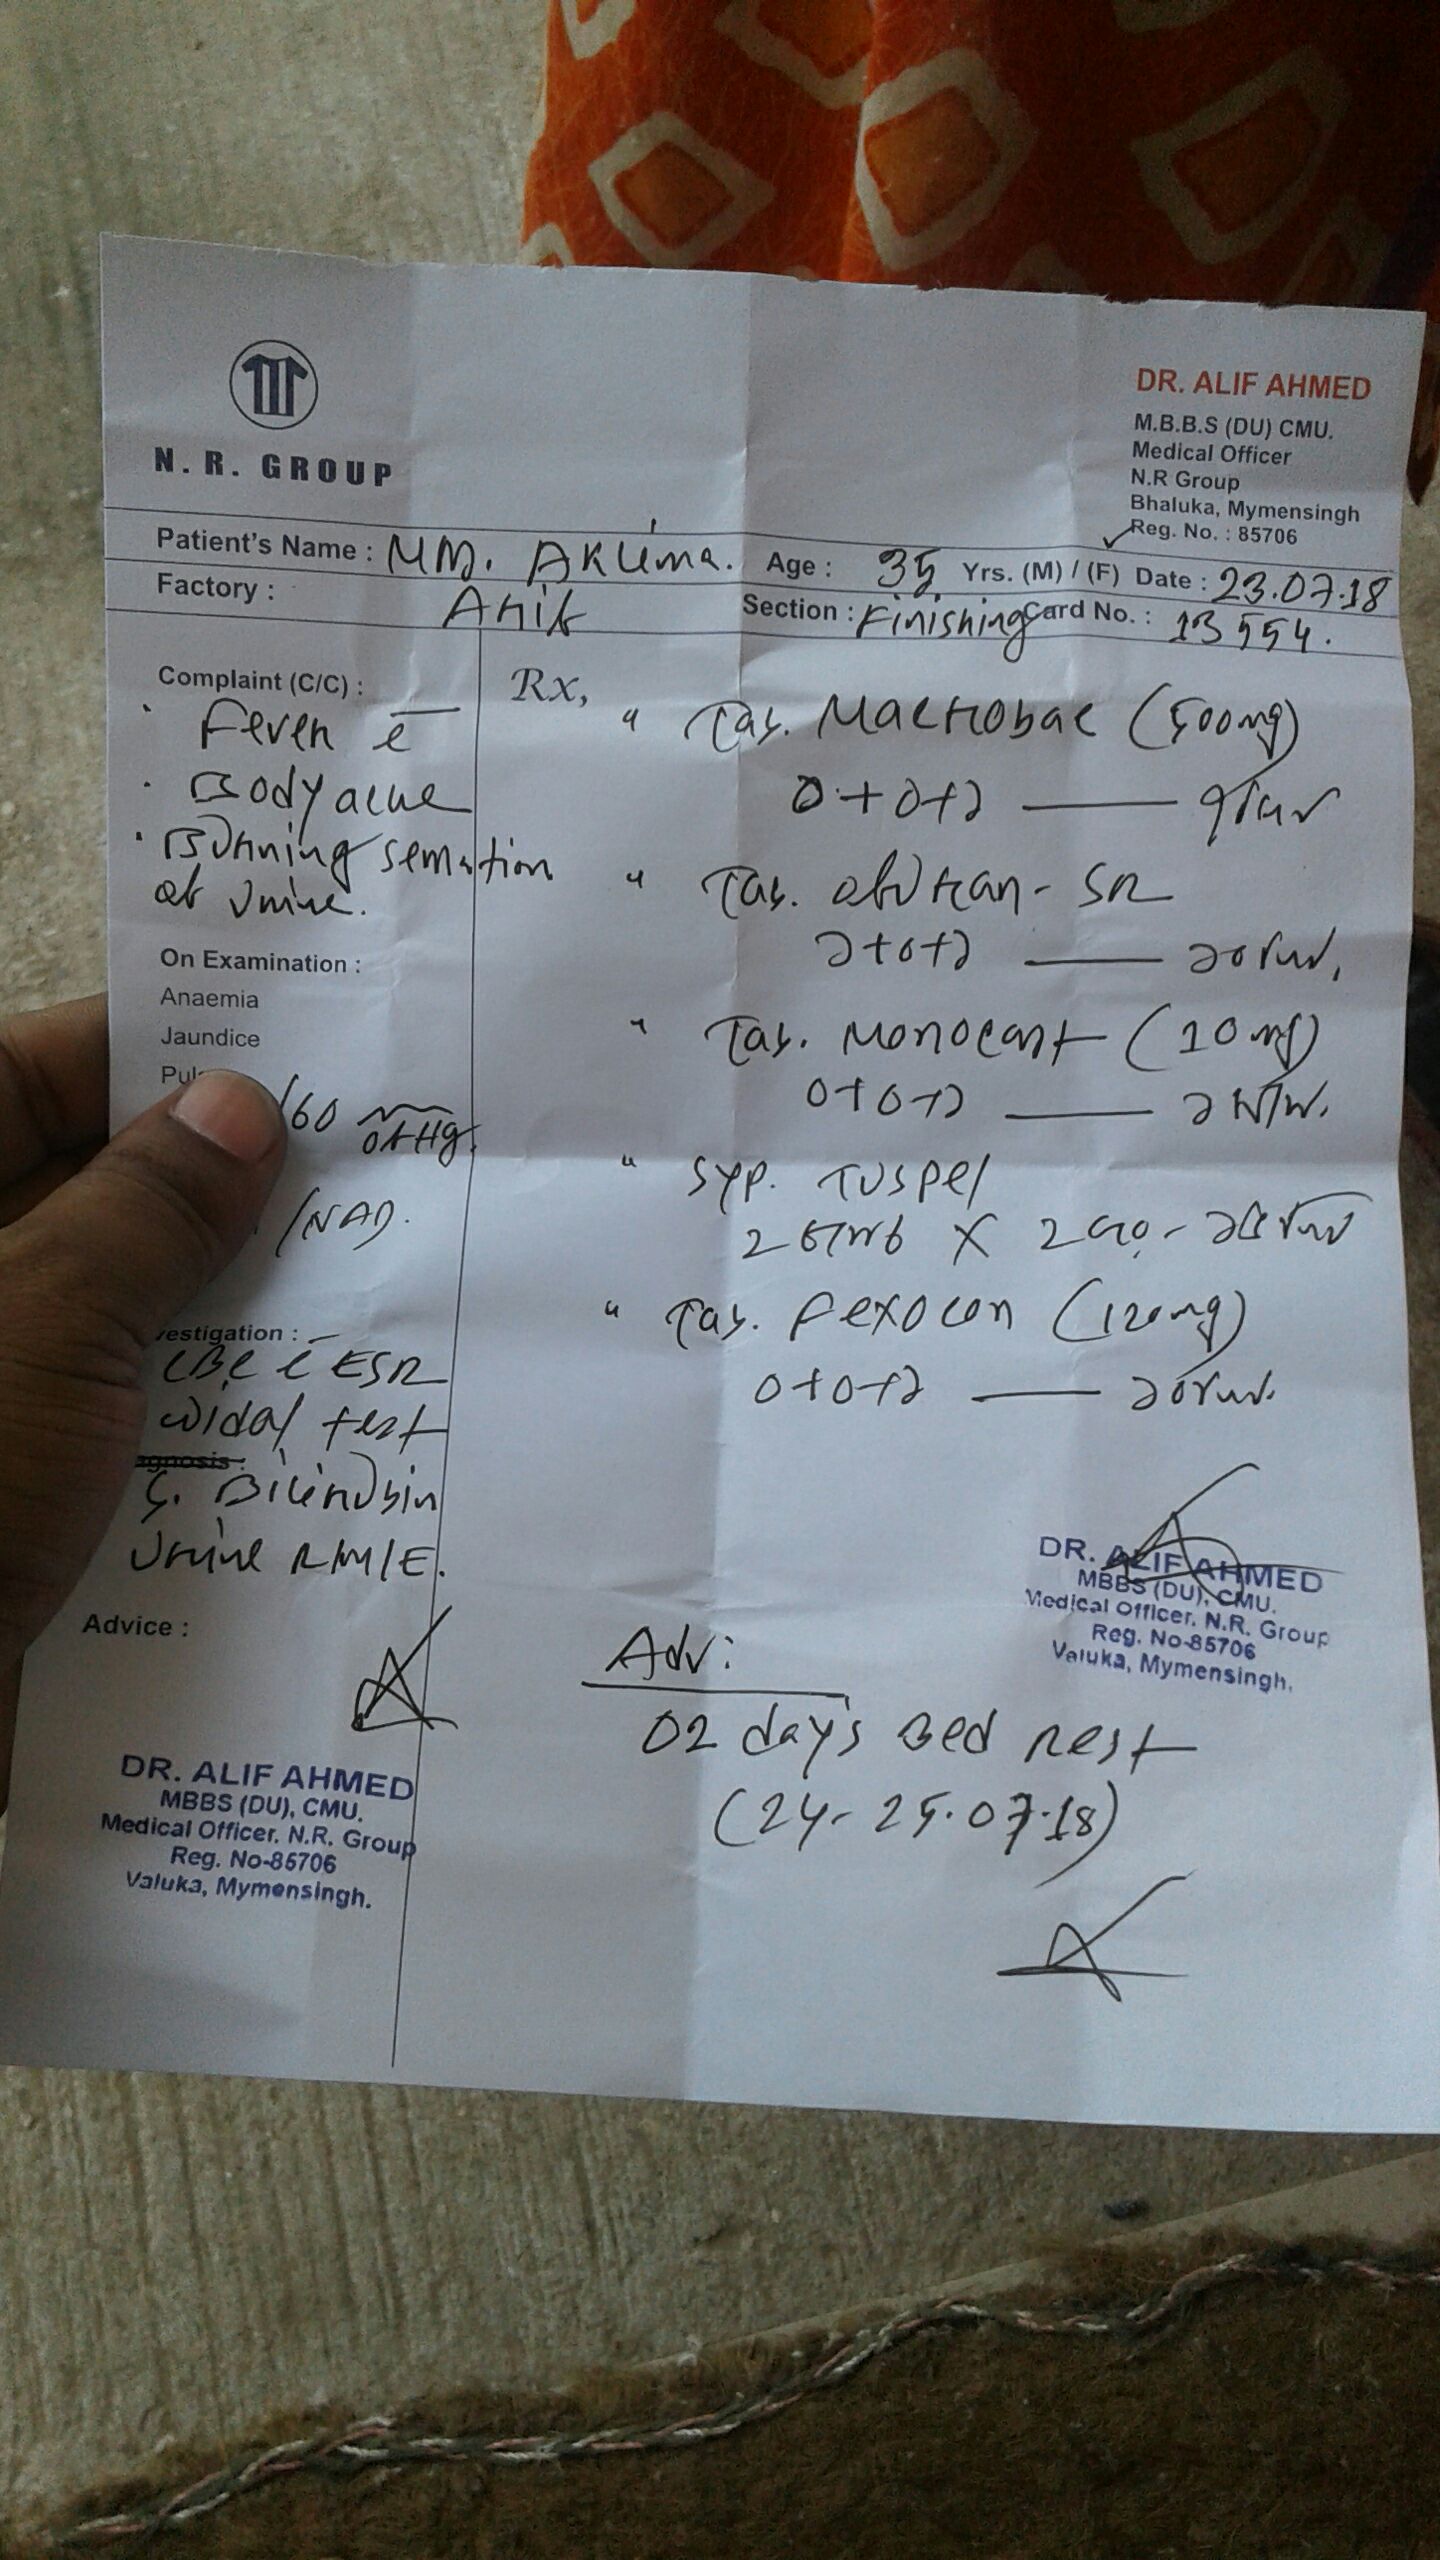 N. R. GROUP
DR. ALIF AHMED
M.B.B.S (DU) CMU.
Medical Officer
N.R Group
Bhaluka, Mymensingh
Reg. No. : 85706
Patient's Name : MM. Aklima. Age : 35 Yrs. (M) / (F) Date : 23.07.18
Factory : Section : Finishing Card No. : 13554.
Complaint (C/C) :
Fever c̅
Body ache
Burning sensation
at Urine.
On Examination :
Anaemia
Jaundice
/60 mmHg.
/NAD.
CBC c̅ ESR
Widal test
S. Bilirubin
Urine R/M/E.
Advice :
DR. ALIF AHMED
MBBS (DU), CMU.
Medical Officer. N.R. Group
Reg. No-85706
Valuka, Mymensingh.
Rx,
" Tab. Macrobac (500mg)
০+০+১ —
" Tab. SR
১+০+১ —
" Tab. Monocast (10 mg)
০+০+১ — ১ মাস.
" Syp. Tuspel
২ চামচ X
" Tab. Fexocon (120mg)
০+০+১ —
DR. ALIF AHMED
MBBS (DU), CMU.
Medical Officer. N.R. Group
Reg. No-85706
Valuka, Mymensingh.
Adv:
02 day's Bed rest
(24- 25.07.18)